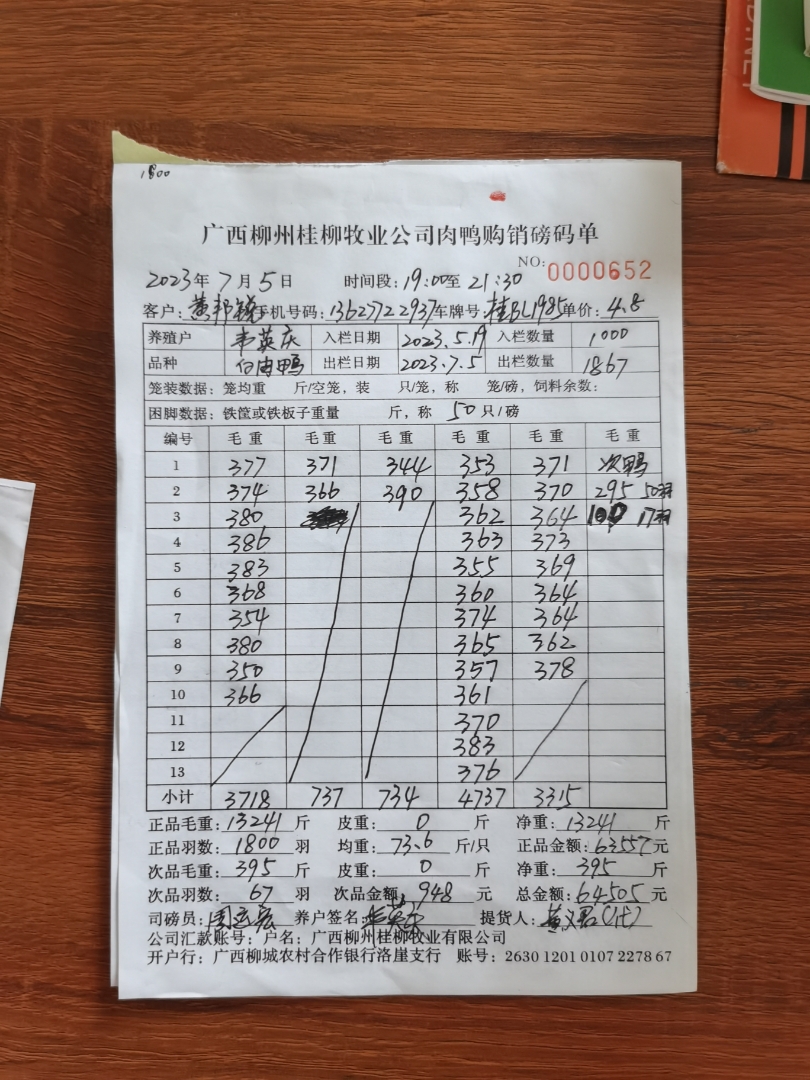 1800
广西柳州桂柳牧业公司肉鸭购销磅码单
NO: 0000652
2023年7月5日 时间段:19:00至21:30
客户:黄邦锐 手机号码:13627722937 车牌号:桂BL1985 单价:4.8
养殖户 韦英庆 入栏日期 2023.5.19 入栏数量 1000
品种 白肉鸭 出栏日期 2023.7.5 出栏数量 1867
笼装数据: 笼均重 斤/空笼, 装 只/笼, 称 笼/磅, 饲料余数:
困脚数据: 铁筐或铁板子重量 斤, 称 50只/磅
编号 毛重 毛重 毛重 毛重 毛重 毛重
1 377 371 344 353 371 次鸭
2 374 366 390 358 370 295 50羽
3 380 362 364 100 17羽
4 386 363 373
5 383 355 369
6 368 360 364
7 354 374 364
8 380 365 362
9 350 357 378
10 366 361
11 370
12 383
13 376
小计 3718 737 734 4737 3315
正品毛重:13241斤 皮重:0斤 净重:13241斤
正品羽数:1800羽 均重:73.6斤/只 正品金额:63557元
次品毛重:395斤 皮重:0斤 净重:395斤
次品羽数:67羽 次品金额:948元 总金额:64505元
司磅员: 养户签名:韦英庆 提货人:
公司汇款账号: 户名: 广西柳州桂柳牧业有限公司
开户行: 广西柳城农村合作银行洛崖支行 账号: 2630 1201 0107 2278 67